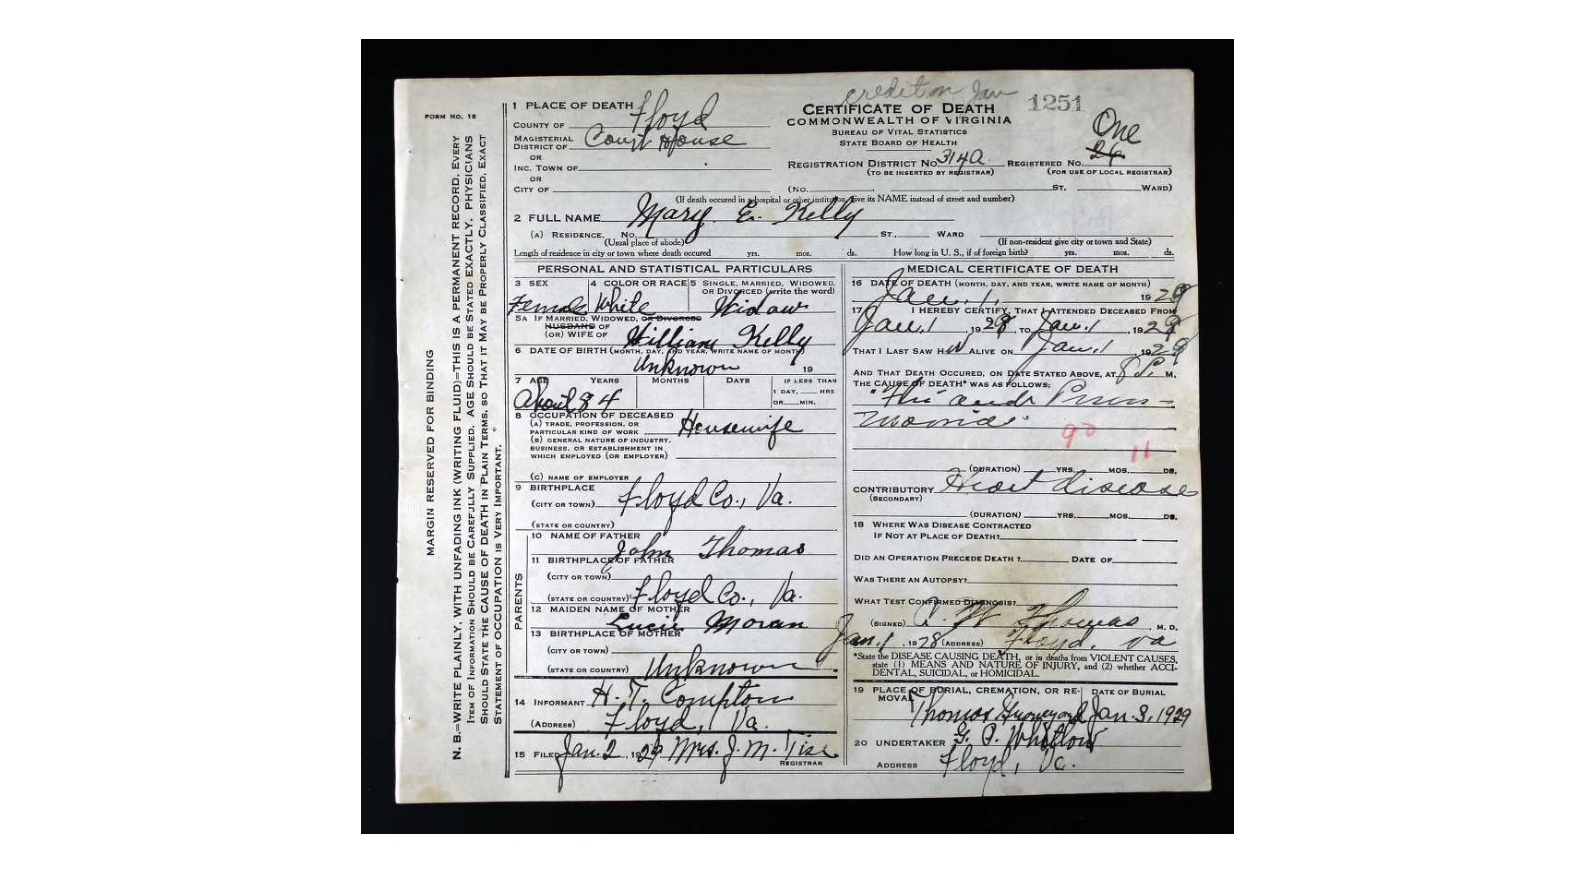 credit on Jan
1251
FORM NO. 12
MARGIN RESERVED FOR BINDING
N. B.—WRITE PLAINLY, WITH UNFADING INK (WRITING FLUID)—THIS IS A PERMANENT RECORD. EVERY
ITEM OF INFORMATION SHOULD BE CAREFULLY SUPPLIED. AGE SHOULD BE STATED EXACTLY. PHYSICIANS
SHOULD STATE THE CAUSE OF DEATH IN PLAIN TERMS, SO THAT IT MAY BE PROPERLY CLASSIFIED. EXACT
STATEMENT OF OCCUPATION IS VERY IMPORTANT.
1 PLACE OF DEATH
COUNTY OF Floyd
MAGISTERIAL DISTRICT OF Court House
OR
INC. TOWN OF
OR
CITY OF
CERTIFICATE OF DEATH
COMMONWEALTH OF VIRGINIA
BUREAU OF VITAL STATISTICS
STATE BOARD OF HEALTH
REGISTRATION DISTRICT NO. 314A REGISTERED NO. 26 One
(TO BE INSERTED BY REGISTRAR) (FOR USE OF LOCAL REGISTRAR)
(No. ST. WARD)
(If death occured in a hospital or other institution, give its NAME instead of street and number)
2 FULL NAME Mary E. Kelly
(A) RESIDENCE. No. ST., WARD
(Usual place of abode) (If non-resident give city or town and State)
Length of residence in city or town where death occured yrs. mos. ds. How long in U. S., if of foreign birth? yrs. mos. ds.
PERSONAL AND STATISTICAL PARTICULARS
3 SEX 4 COLOR OR RACE 5 SINGLE, MARRIED, WIDOWED, OR DIVORCED (write the word)
Female White Widow
5A IF MARRIED, WIDOWED, OR DIVORCED
HUSBAND OF
(OR) WIFE OF William Kelly
6 DATE OF BIRTH (MONTH, DAY, AND YEAR, WRITE NAME OF MONTH)
Unknown 19
7 AGE YEARS MONTHS DAYS IF LESS THAN
1 DAY, HRS
OR MIN.
About 84
8 OCCUPATION OF DECEASED
(A) TRADE, PROFESSION, OR
PARTICULAR KIND OF WORK Housewife
(B) GENERAL NATURE OF INDUSTRY,
BUSINESS, OR ESTABLISHMENT IN
WHICH EMPLOYED (OR EMPLOYER)
(C) NAME OF EMPLOYER
9 BIRTHPLACE
(CITY OR TOWN) Floyd Co., Va.
(STATE OR COUNTRY)
PARENTS
10 NAME OF FATHER
John Thomas
11 BIRTHPLACE OF FATHER
(CITY OR TOWN)
(STATE OR COUNTRY) Floyd Co., Va.
12 MAIDEN NAME OF MOTHER
Lucie Moran
13 BIRTHPLACE OF MOTHER
(CITY OR TOWN)
(STATE OR COUNTRY) Unknown
14 INFORMANT H. T. Compton
(ADDRESS) Floyd, Va.
15 FILED Jan. 2, 1929 Mrs. J. M. Tise
REGISTRAR
MEDICAL CERTIFICATE OF DEATH
16 DATE OF DEATH (MONTH, DAY, AND YEAR, WRITE NAME OF MONTH)
Jan. 1, 1929
17 I HEREBY CERTIFY, THAT I ATTENDED DECEASED FROM
Jan. 1 1929, TO Jan. 1, 1929
THAT I LAST SAW H ALIVE ON Jan. 1, 1929
AND THAT DEATH OCCURED, ON DATE STATED ABOVE, AT 8 P. M.
THE CAUSE OF DEATH* WAS AS FOLLOWS:
"Flu" and Pneu-
monia
90 11
(DURATION) YRS. MOS. DS.
CONTRIBUTORY Heart disease
(SECONDARY)
(DURATION) YRS. MOS. DS.
18 WHERE WAS DISEASE CONTRACTED
IF NOT AT PLACE OF DEATH?
DID AN OPERATION PRECEDE DEATH? DATE OF
WAS THERE AN AUTOPSY?
WHAT TEST CONFIRMED DIAGNOSIS?
(SIGNED) C. W. Thomas, M. D.
Jan. 1, 1928 (ADDRESS) Floyd, Va
*State the DISEASE CAUSING DEATH, or in deaths from VIOLENT CAUSES,
state (1) MEANS AND NATURE OF INJURY, and (2) whether ACCI-
DENTAL, SUICIDAL, or HOMICIDAL.
19 PLACE OF BURIAL, CREMATION, OR RE- DATE OF BURIAL
MOVAL
Thomas Graveyard Jan. 3, 1929
20 UNDERTAKER G. P. Whitlow
ADDRESS Floyd, Va.